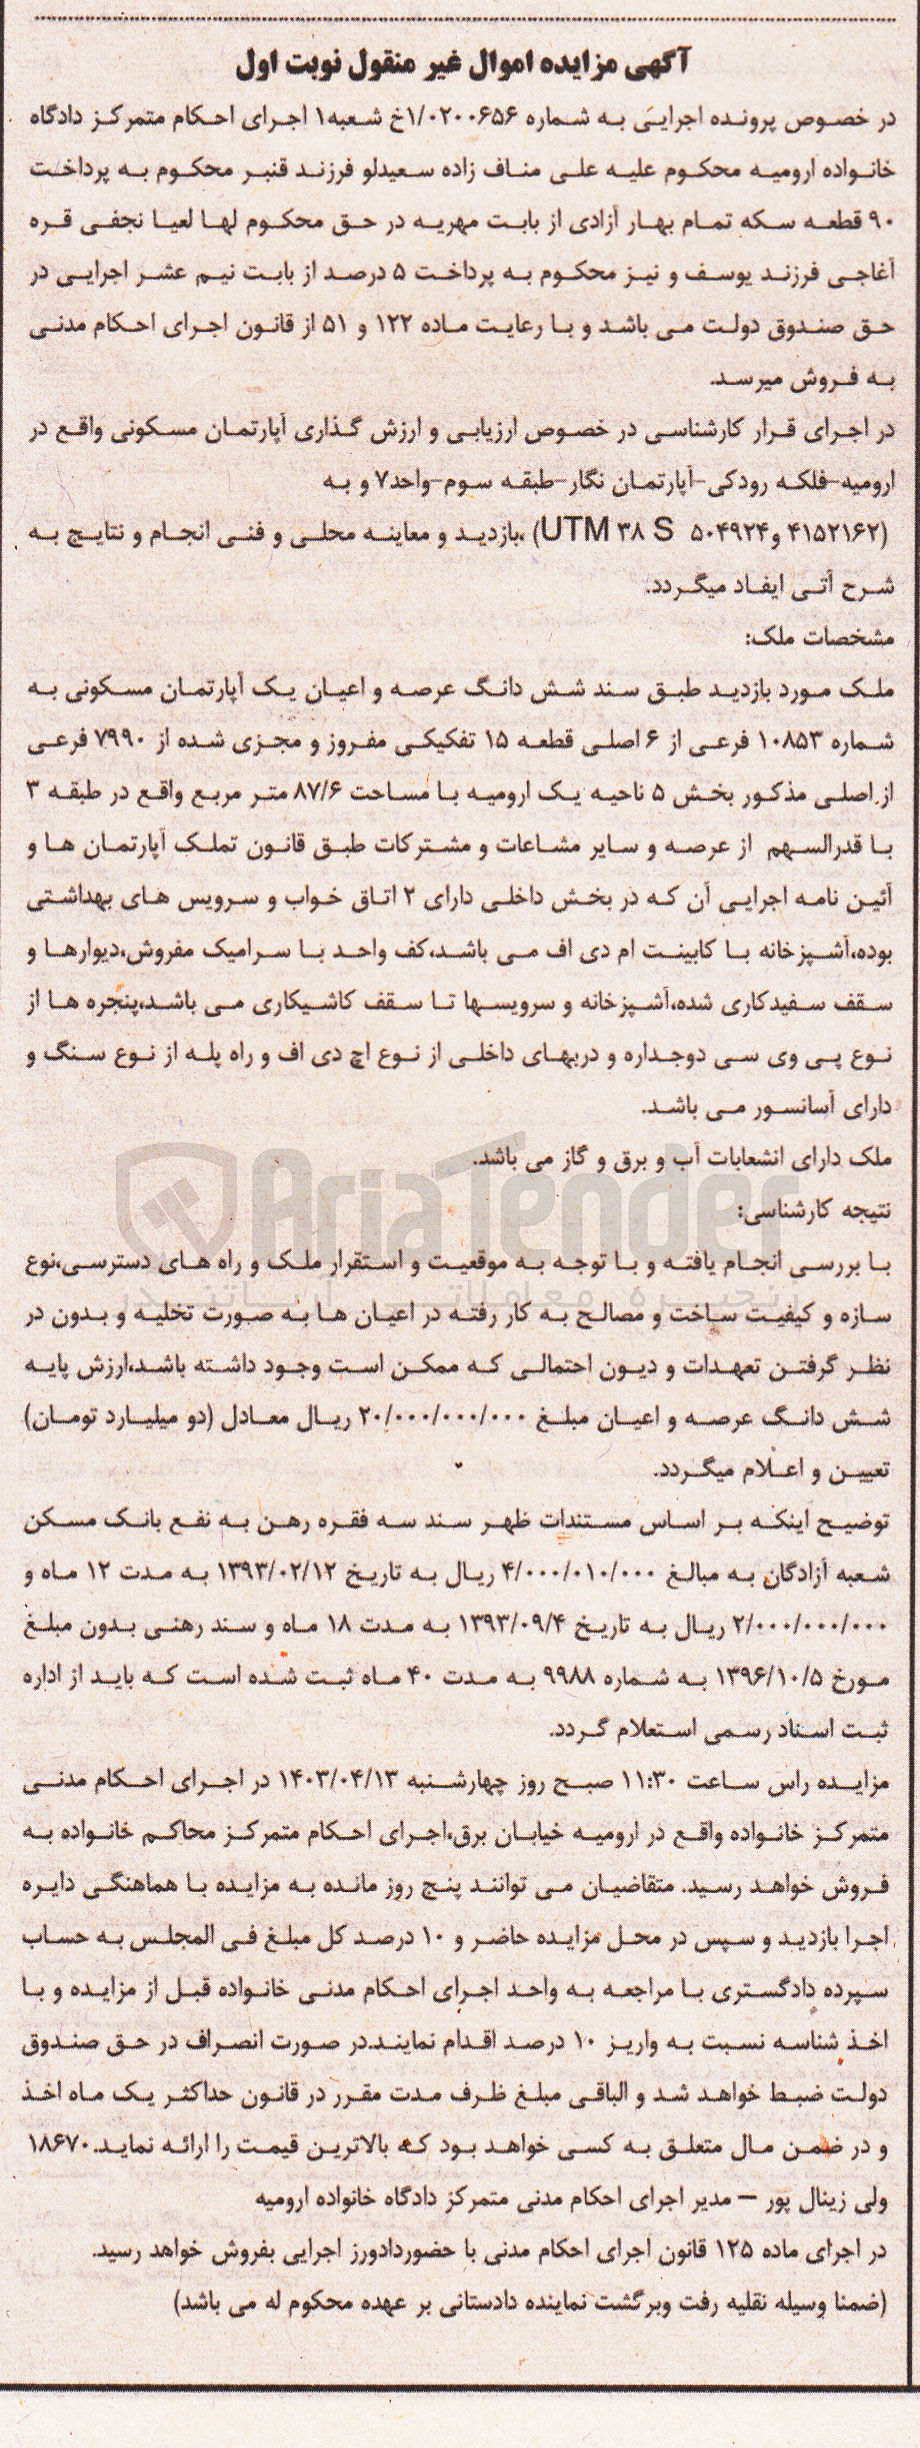 آگهی مزایده اموال غیر منقول نوبت اول
در خصوص پرونده اجرایی به شماره ۱/۰۲۰۰۶۵۶خ شعبه۱ اجرای احکام متمرکز دادگاه
خانواده ارومیه محکوم علیه علی مناف زاده سعیدلو فرزند قنبر محکوم به پرداخت
۹۰ قطعه سکه تمام بهار آزادی از بابت مهریه در حق محکوم لها لعیا نجفی قره
آغاجی فرزند یوسف و نیز محکوم به پرداخت ۵ درصد از بابت نیم عشر اجرایی در
حق صندوق دولت می باشد و با رعایت ماده ۱۲۲ و ۵۱ از قانون اجرای احکام مدنی
به فروش میرسد.
در اجرای قرار کارشناسی در خصوص ارزیابی و ارزش گذاری آپارتمان مسکونی واقع در
ارومیه-فلکه رودکی-آپارتمان نگار-طبقه سوم-واحد۷ و به
(۴۱۵۲۱۶۲ و۵۰۴۹۲۴ UTM ۳۸ S) ،بازدید و معاینه محلی و فنی انجام و نتایج به
شرح آتی ایفاد میگردد.
مشخصات ملک:
ملک مورد بازدید طبق سند شش دانگ عرصه و اعیان یک آپارتمان مسکونی به
شماره ۱۰۸۵۳ فرعی از ۶ اصلی قطعه ۱۵ تفکیکی مفروز و مجزی شده از ۷۹۹۰ فرعی
از اصلی مذکور بخش ۵ ناحیه یک ارومیه با مساحت ۸۷/۶ متر مربع واقع در طبقه ۳
با قدرالسهم از عرصه و سایر مشاعات و مشترکات طبق قانون تملک آپارتمان ها و
آئین نامه اجرایی آن که در بخش داخلی دارای ۲ اتاق خواب و سرویس های بهداشتی
بوده،آشپزخانه با کابینت ام دی اف می باشد،کف واحد با سرامیک مفروش،دیوارها و
سقف سفیدکاری شده،آشپزخانه و سرویسها تا سقف کاشیکاری می باشد،پنجره ها از
نوع پی وی سی دوجداره و دربهای داخلی از نوع اچ دی اف و راه پله از نوع سنگ و
دارای آسانسور می باشد.
ملک دارای انشعابات آب و برق و گاز می باشد.
AriaTender
نتیجه کارشناسی:
با بررسی انجام یافته و با توجه به موقعیت و استقرار ملک و راه های دسترسی،نوع
زنجیره معاملاتی آریاتندر
سازه و کیفیت ساخت و مصالح به کار رفته در اعیان ها به صورت تخلیه و بدون در
نظر گرفتن تعهدات و دیون احتمالی که ممکن است وجود داشته باشد،ارزش پایه
شش دانگ عرصه و اعیان مبلغ ۲۰/۰۰۰/۰۰۰/۰۰۰ ریال معادل (دو میلیارد تومان)
تعیین و اعلام میگردد.
توضیح اینکه بر اساس مستندات ظهر سند سه فقره رهن به نفع بانک مسکن
شعبه آزادگان به مبالغ ۴/۰۰۰/۰۱۰/۰۰۰ ریال به تاریخ ۱۳۹۳/۰۲/۱۲ به مدت ۱۲ ماه و
۲/۰۰۰/۰۰۰/۰۰۰ ریال به تاریخ ۱۳۹۳/۰۹/۴ به مدت ۱۸ ماه و سند رهنی بدون مبلغ
مورخ ۱۳۹۶/۱۰/۵ به شماره ۹۹۸۸ به مدت ۴۰ ماه ثبت شده است که باید از اداره
ثبت اسناد رسمی استعلام گردد.
مزایده راس ساعت ۱۱:۳۰ صبح روز چهارشنبه ۱۴۰۳/۰۴/۱۳ در اجرای احکام مدنی
متمرکز خانواده واقع در ارومیه خیابان برق،اجرای احکام متمرکز محاکم خانواده به
فروش خواهد رسید. متقاضیان می توانند پنج روز مانده به مزایده با هماهنگی دایره
اجرا بازدید و سپس در محل مزایده حاضر و ۱۰ درصد کل مبلغ فی المجلس به حساب
سپرده دادگستری با مراجعه به واحد اجرای احکام مدنی خانواده قبل از مزایده و با
اخذ شناسه نسبت به واریز ۱۰ درصد اقدام نمایند.در صورت انصراف در حق صندوق
دولت ضبط خواهد شد و الباقی مبلغ ظرف مدت مقرر در قانون حداکثر یک ماه اخذ
و در ضمن مال متعلق به کسی خواهد بود که بالاترین قیمت را ارائه نماید.۱۸۶۷۰
ولی زینال پور – مدیر اجرای احکام مدنی متمرکز دادگاه خانواده ارومیه
در اجرای ماده ۱۲۵ قانون اجرای احکام مدنی با حضوردادورز اجرایی بفروش خواهد رسید.
(ضمنا وسیله نقلیه رفت وبرگشت نماینده دادستانی بر عهده محکوم له می باشد)